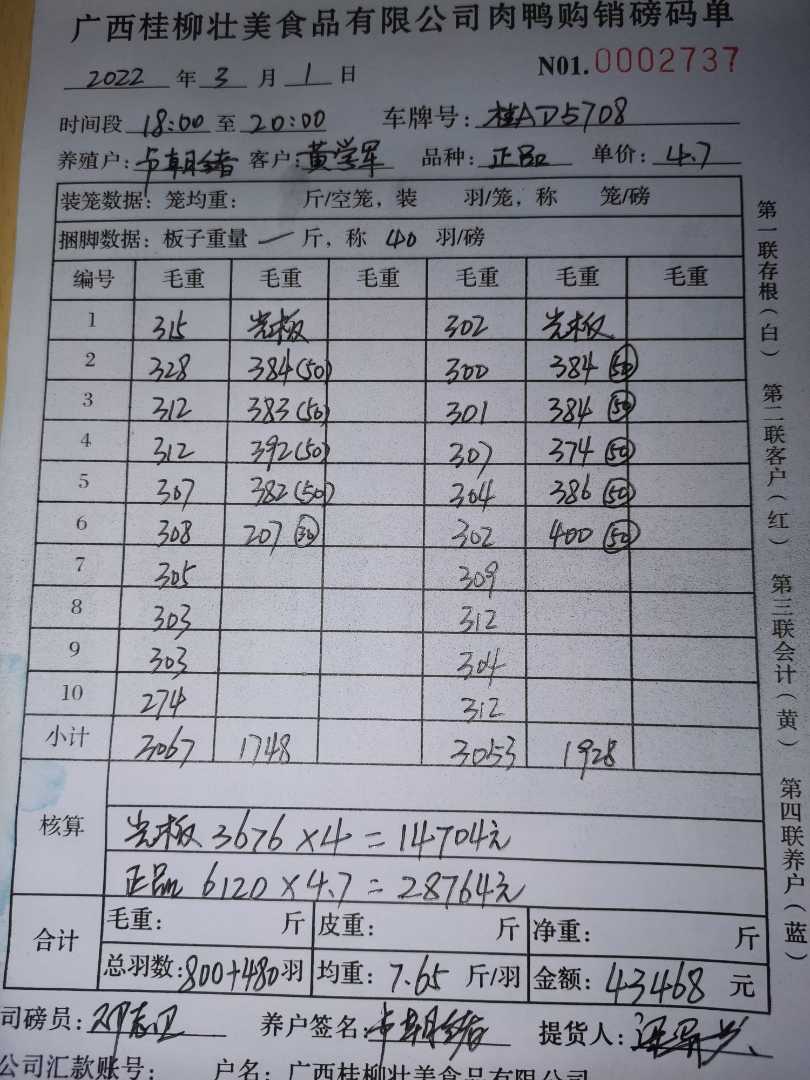 广西桂柳壮美食品有限公司肉鸭购销磅码单
2022 年 3 月 1 日 N01. 0002737
时间段 18:00 至 20:00 车牌号: 桂AD5708
养殖户: 卢朝绪 客户: 黄学军 品种: 正品 单价: 4.7
装笼数据: 笼均重: 斤/空笼, 装 羽/笼, 称 笼/磅
捆脚数据: 板子重量 一 斤, 称 40 羽/磅
编号 毛重 毛重 毛重 毛重 毛重 毛重
1 315 光板 302 光板
2 328 384(50) 300 384(50)
3 312 383(50) 301 384(50)
4 312 392(50) 307 374(50)
5 307 382(50) 304 386(50)
6 308 207(30) 302 400(50)
7 305 309
8 303 312
9 303 304
10 274 312
小计 3067 1748 3053 1928
核算
光板 3676×4=14704元
正品 6120×4.7=28764元
合计
毛重: 斤 皮重: 斤 净重: 斤
总羽数: 800+480 羽 均重: 7.65 斤/羽 金额: 43468 元
司磅员: 邓志卫 养户签名: 卢朝绪 提货人:
公司汇款账号: 户名: 广西桂柳壮美食品有限公司
第一联存根(白) 第二联客户(红) 第三联会计(黄) 第四联养户(蓝)